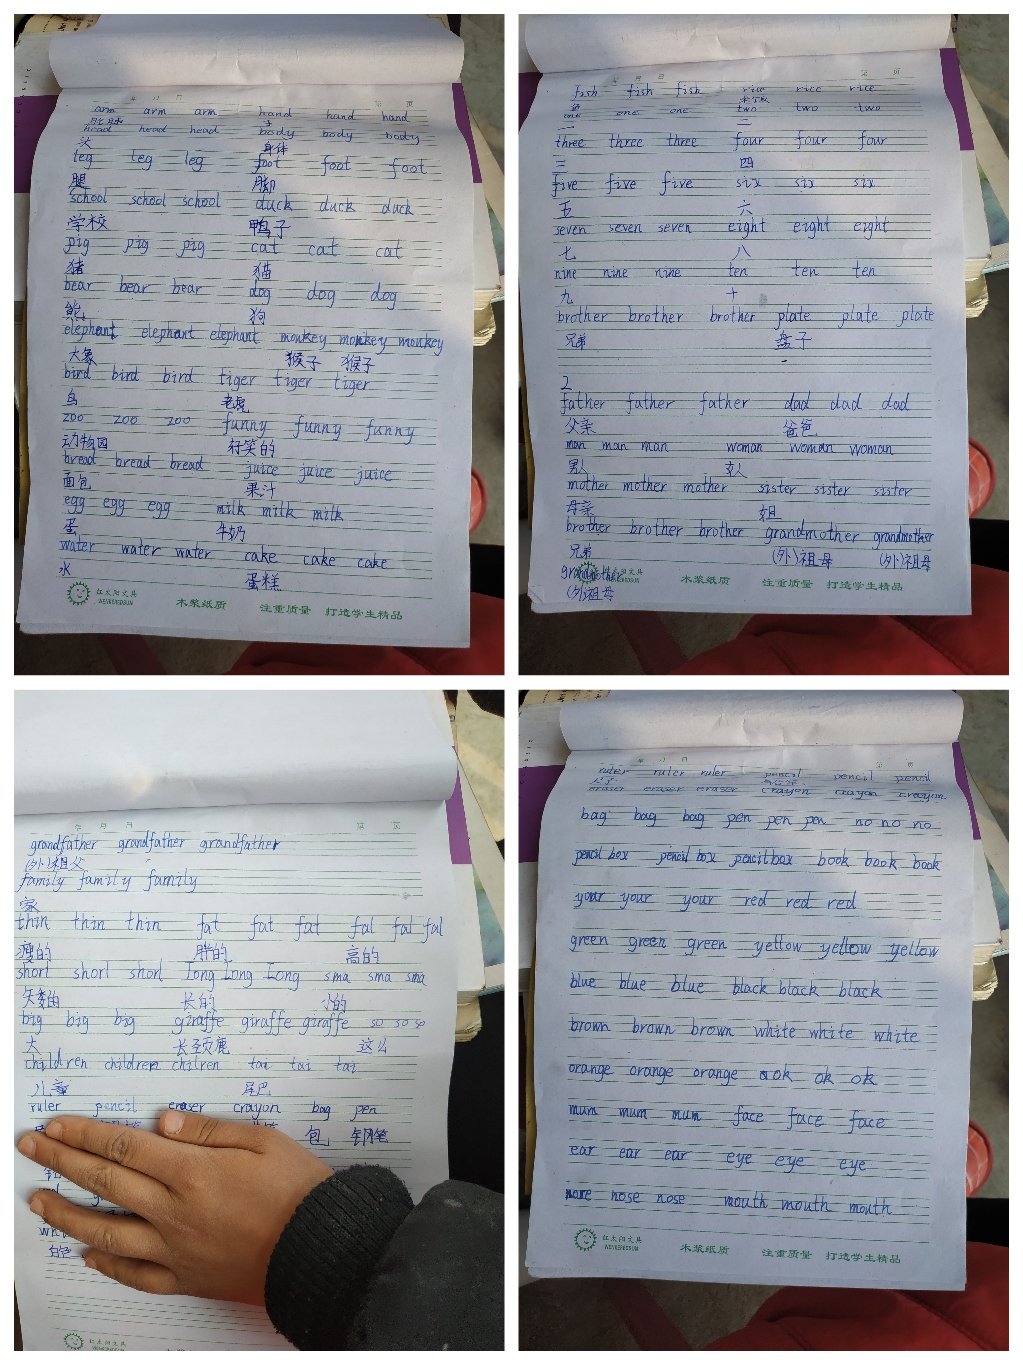 年 月 日 第 页
arm arm arm hand hand hand
胳膊 手
head head head body body body
头 身体
leg leg leg foot foot foot
腿 脚
school school school duck duck duck
学校 鸭子
pig pig pig cat cat cat
猪 猫
bear bear bear dog dog dog
熊 狗
elephant elephant elephant monkey monkey monkey
大象 猴子 猴子
bird bird bird tiger tiger tiger
鸟 老虎
zoo zoo zoo funny funny funny
动物园 好笑的
bread bread bread juice juice juice
面包 果汁
egg egg egg milk milk milk
蛋 牛奶
water water water cake cake cake
水 蛋糕
红太阳文具
木浆纸质 注重质量 打造学生精品
年 月 日 第 页
fish fish fish rice rice rice
鱼 米饭
one one one two two two
一 二
three three three four four four
三 四
five five five six six six
五 六
seven seven seven eight eight eight
七 八
nine nine nine ten ten ten
九 十
brother brother brother plate plate plate
兄弟 盘子
2
father father father dad dad dad
父亲 爸爸
man man man woman woman woman
男人 女人
mother mother mother sister sister sister
母亲 姐
brother brother brother grandmother grandmother
兄弟 (外)祖母 (外)祖母
grandmother
(外)祖母
木浆纸质 注重质量 打造学生精品
年 月 日 第 页
grandfather grandfather grandfather
(外)祖父
family family family
家
thin thin thin fat fat fat fal fal fal
瘦的 胖的 高的
shorl shorl shorl Long Long Long sma sma sma
矮的 长的 小的
big big big giraffe giraffe giraffe so so so
大 长颈鹿 这么
children children chilren tai tai tai
儿童 尾巴
ruler pencil eraser crayon bag pen
包 钢笔
白色
红太阳文具
木浆纸质
年 月 日 第 页
ruler ruler ruler pencil pencil pencil
尺子
eraser eraser eraser crayon crayon crayon
bag bag bag pen pen pen no no no
pencil box pencil box pencil box book book book
your your your red red red
green green green yellow yellow yellow
blue blue blue black black black
brown brown brown white white white
orange orange orange ok ok ok
mum mum mum face face face
ear ear ear eye eye eye
nose nose nose mouth mouth mouth
红太阳文具
木浆纸质 注重质量 打造学生精品